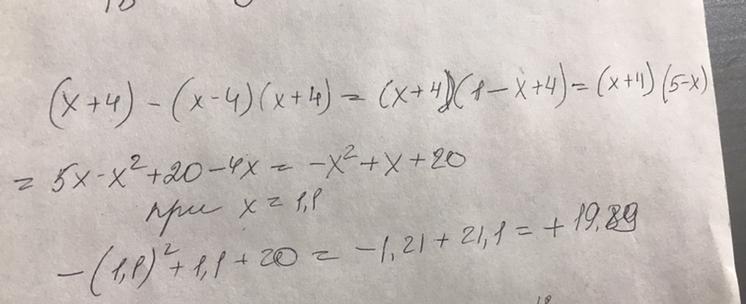 (x+4) - (x-4)(x+4) = (x+4)(1-x+4) = (x+4)(5-x)
= 5x-x²+20-4x = -x²+x+20
при x = 1,1
-(1,1)²+1,1+20 = -1,21+21,1 = +19,89